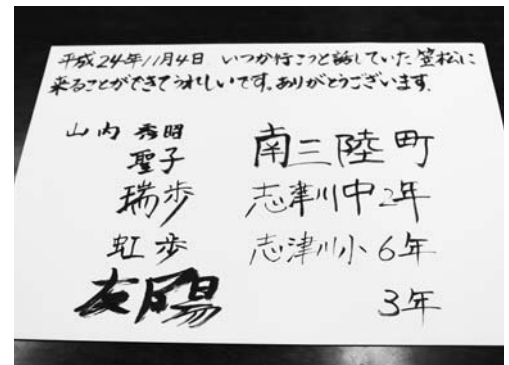 平成24年11月4日 いつか行こうと話していた笠松に
来ることができてうれしいです。ありがとうございます。
山内 秀昭
聖子 南三陸町
瑞歩 志津川中2年
虹歩 志津川小6年
友陽 3年